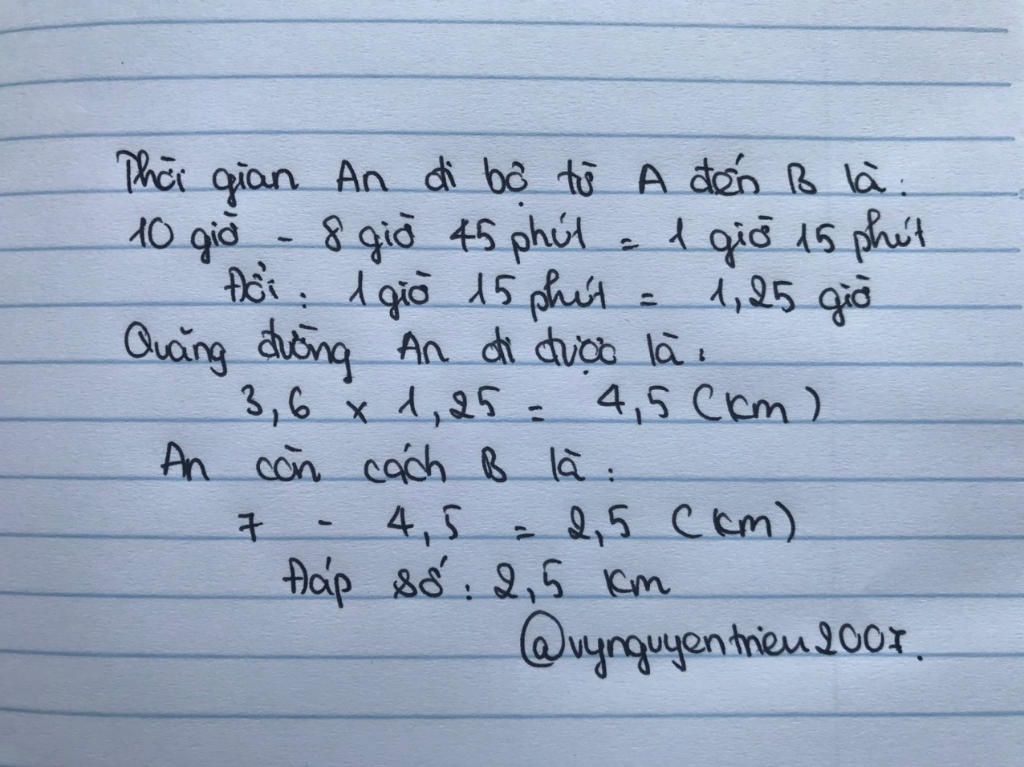 Thời gian An đi bộ từ A đến B là:
10 giờ - 8 giờ 45 phút = 1 giờ 15 phút
Đổi: 1 giờ 15 phút = 1,25 giờ
Quãng đường An đi được là:
3,6 x 1,25 = 4,5 (km)
An còn cách B là:
7 - 4,5 = 2,5 (km)
Đáp số: 2,5 km
@vynguyentrieu2007.